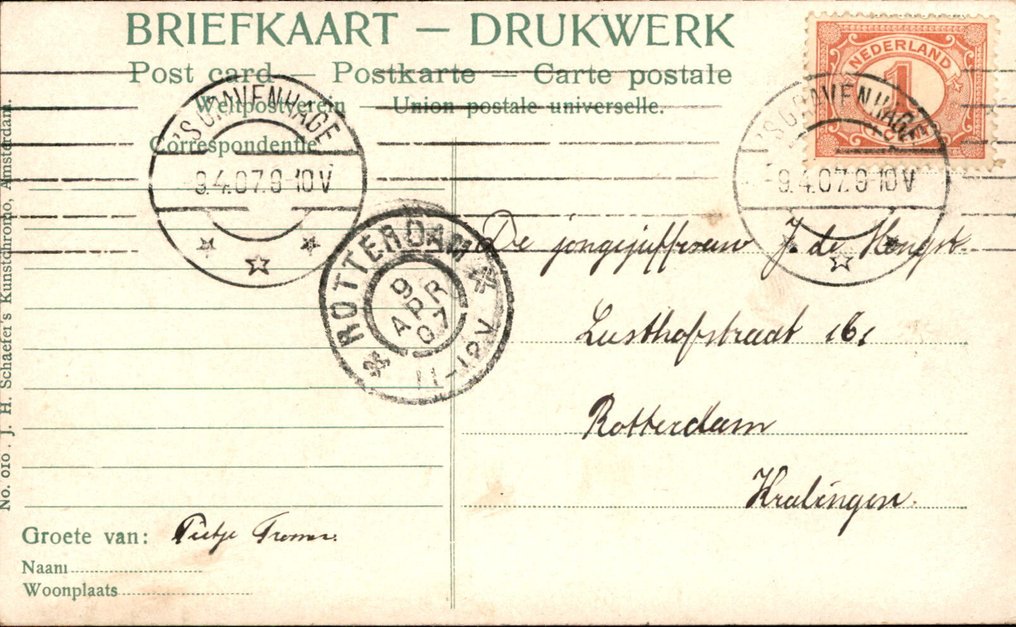 BRIEFKAART — DRUKWERK
Post card — Postkarte — Carte postale
Weltpostverein Union postale universelle.
Correspondentie
NEDERLAND
1
'S GRAVENHAGE
9.4.07.9-10V
'S GRAVENHAGE
9.4.07.9-10V
ROTTERDAM
9
APR
07
11-12V
De jongejuffrouw J. de Hengst.
Lusthofstraat 161
Rotterdam
Kralingen.
Groete van: Pietje
Naam
Woonplaats
No. 010, J. H. Schaefer's Kunstchromo, Amsterdam.